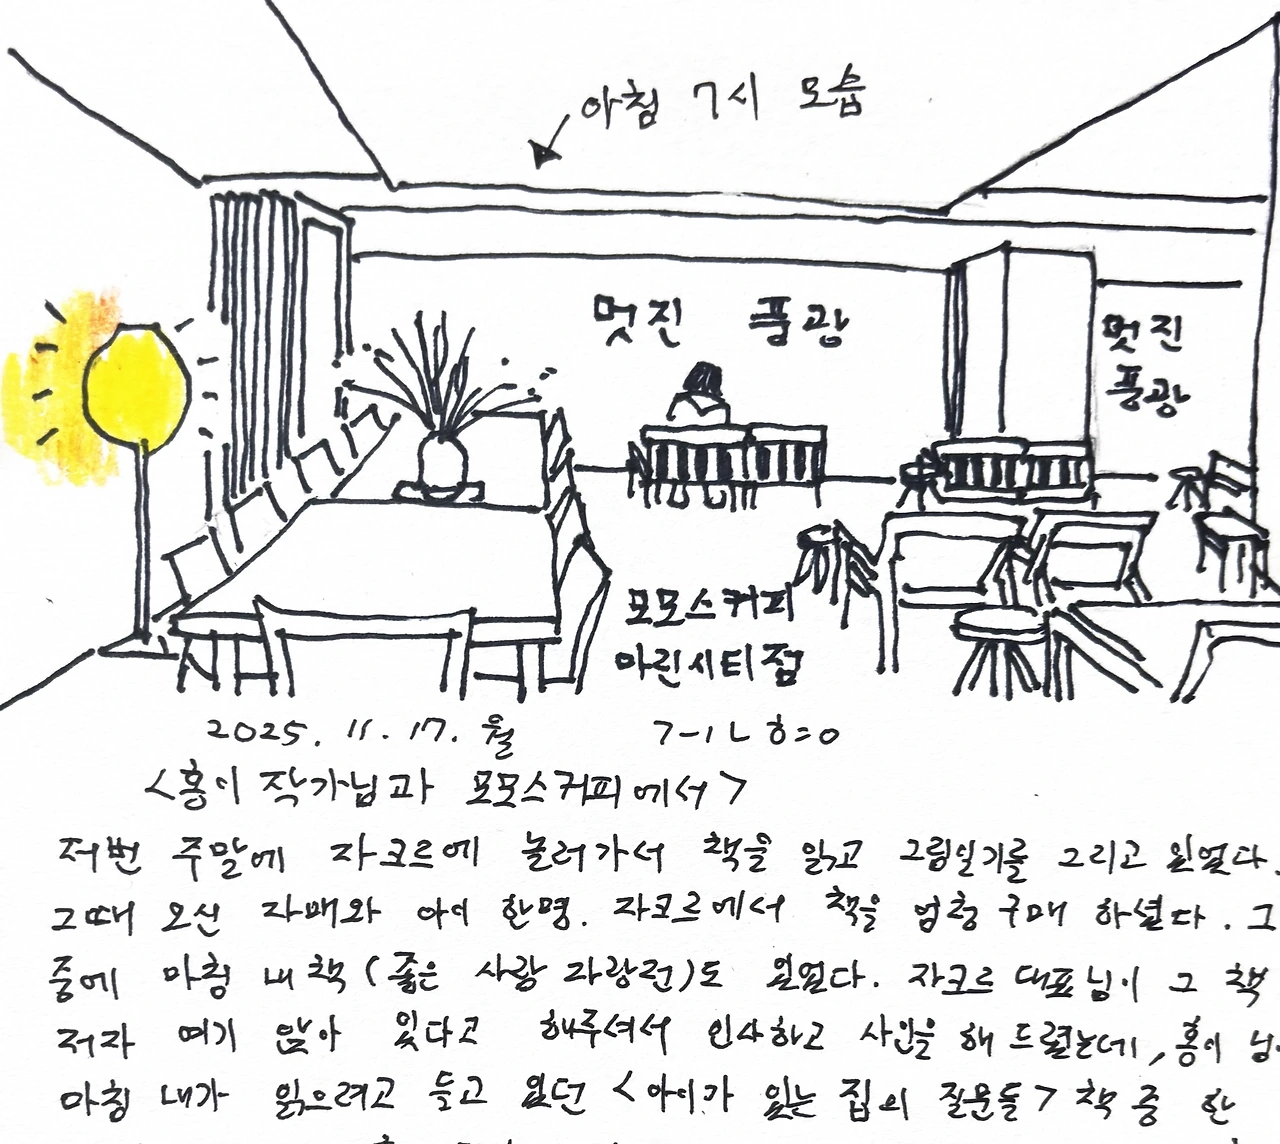 아침 7시 모습
멋진 풍광
멋진
풍광
모모스커피
마린시티점
2025. 11. 17. 월
<홍이 작가님과 모모스커피에서>
저번 주말에 자크르에 놀러가서 책을 읽고 그림일기를 그리고 있었다.
그때 오신 자매와 아이 한명. 자크르에서 책을 엄청 구매 하셨다. 그
중에 마침 내 책 (좋은 사람 자랑전)도 있었다. 자크르 대표님이 그 책
저자 여기 앉아 있다고 해주셔서 인사하고 사인을 해 드렸는데, 홍이
마침 내가 읽으려고 들고 있던 <아이가 있는 집의 질문들> 책 중 한